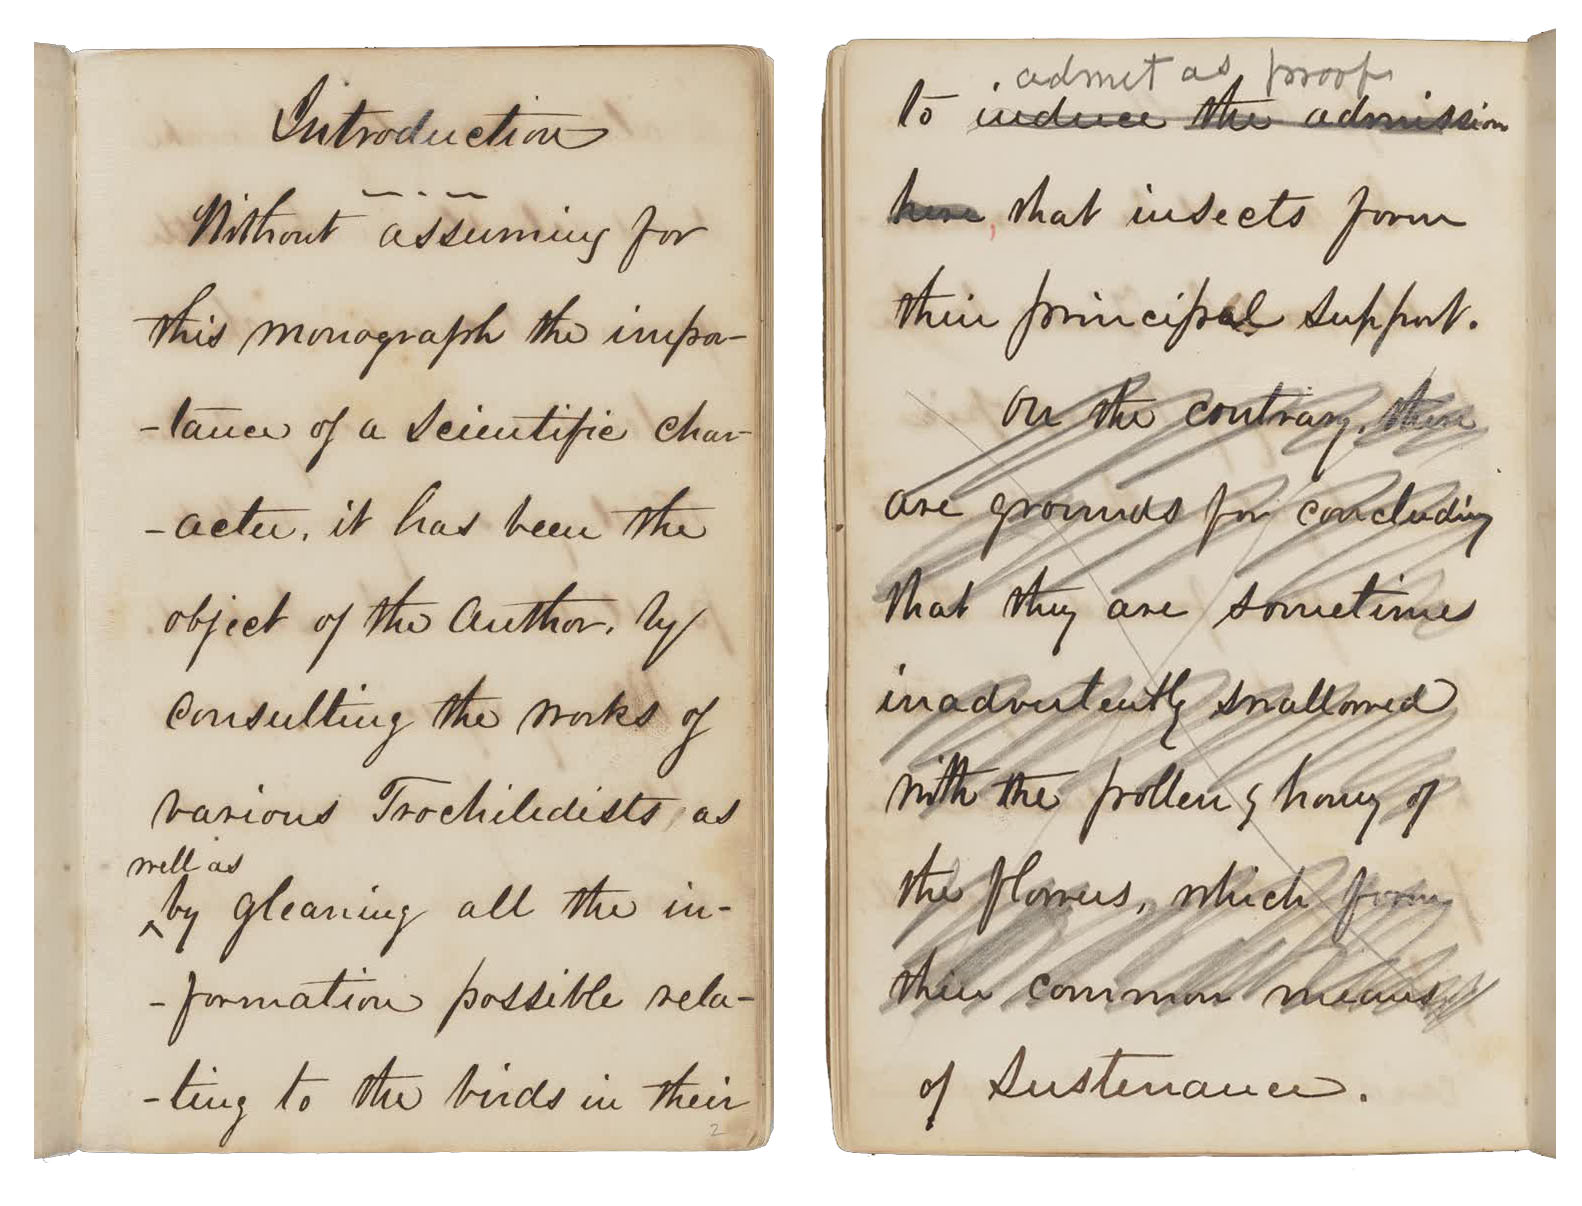 Introduction
Without assuming for
this monograph the impor-
-tance of a scientific char-
-acter, it has been the
object of the Author, by
consulting the works of
various Trochiledists, as
well as
^by gleaning all the in-
-formation possible rela-
-ting to the birds in their
2
admit as proof
to induce the admission
here, that insects form
their principal support.
On the contrary, there
are grounds for concluding
that they are sometimes
inadvertently swallowed
with the pollen & honey of
the flowers, which form
their common means
of sustenance.